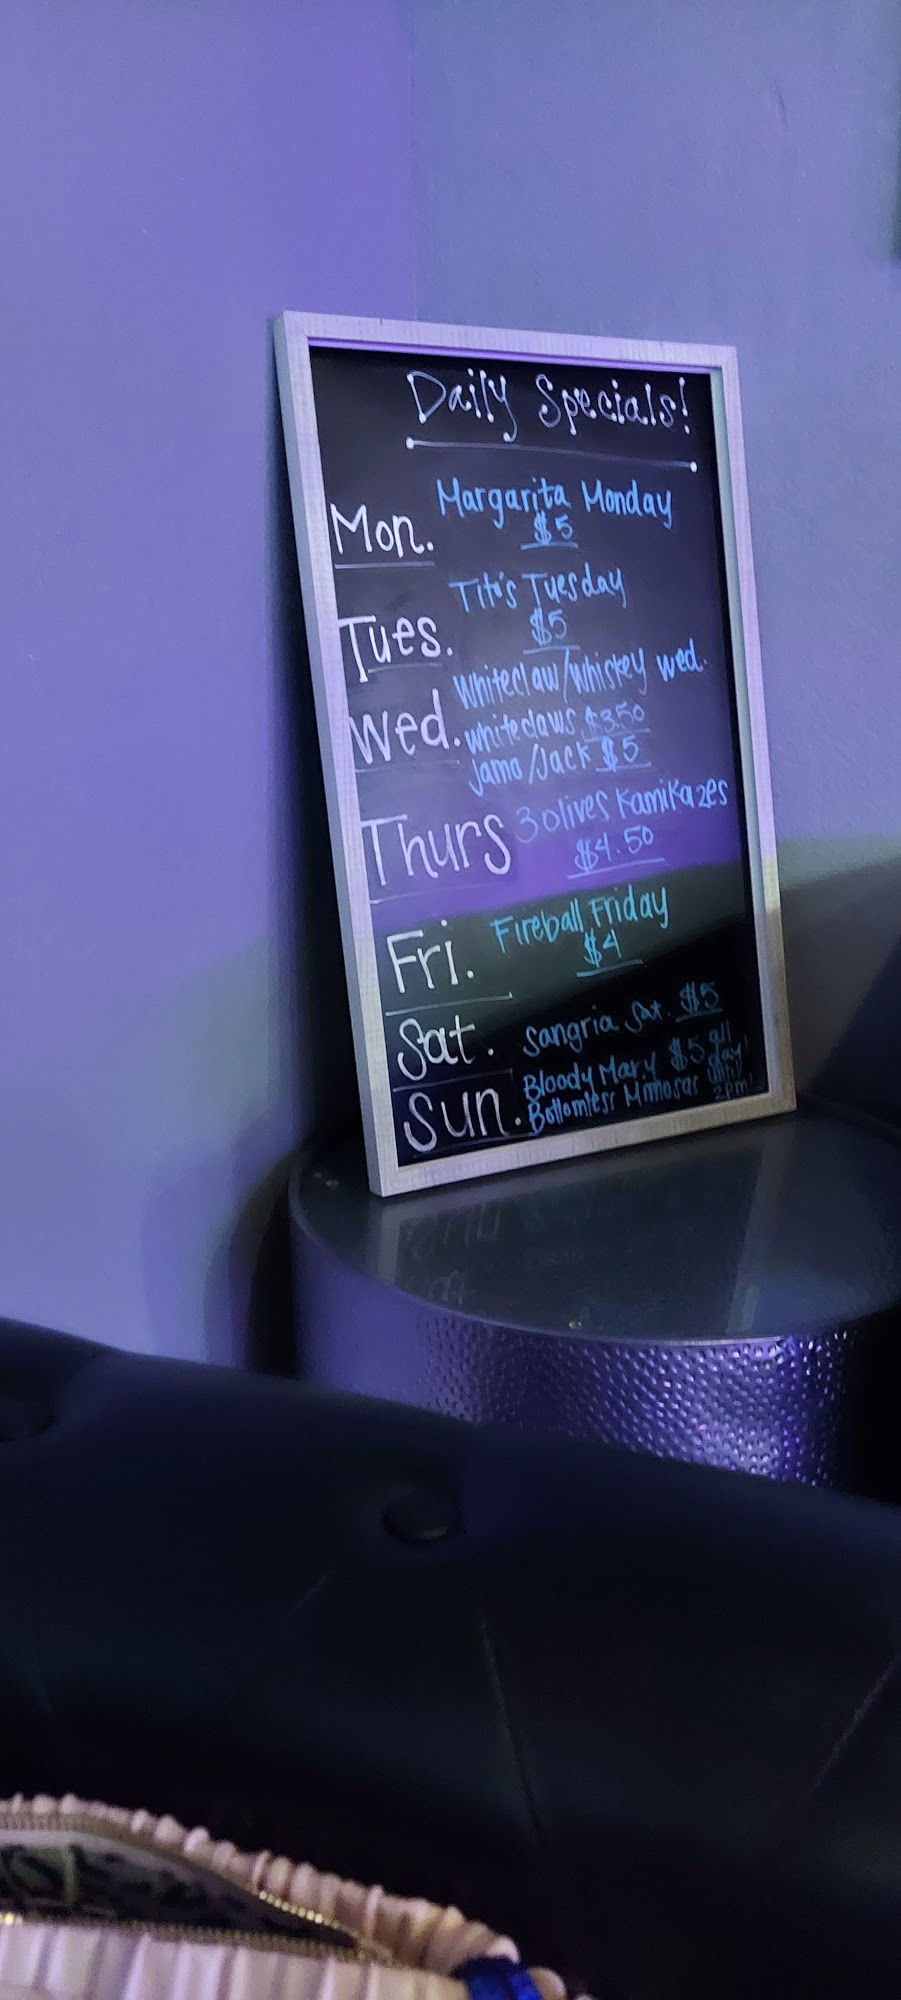 Daily Specials!
Mon. Margarita Monday
$5
Tues. Tito's Tuesday
$5
Wed. Whiteclaw/Whiskey Wed.
Whiteclaws $3.50
Jamo/Jack $5
Thurs 3olives Kamikazes
$4.50
Fri. Fireball Friday
$4
Sat. Sangria Sat. $5
Sun. Bloody Mary $5 all day!
Bottomless Mimosas until 2pm!